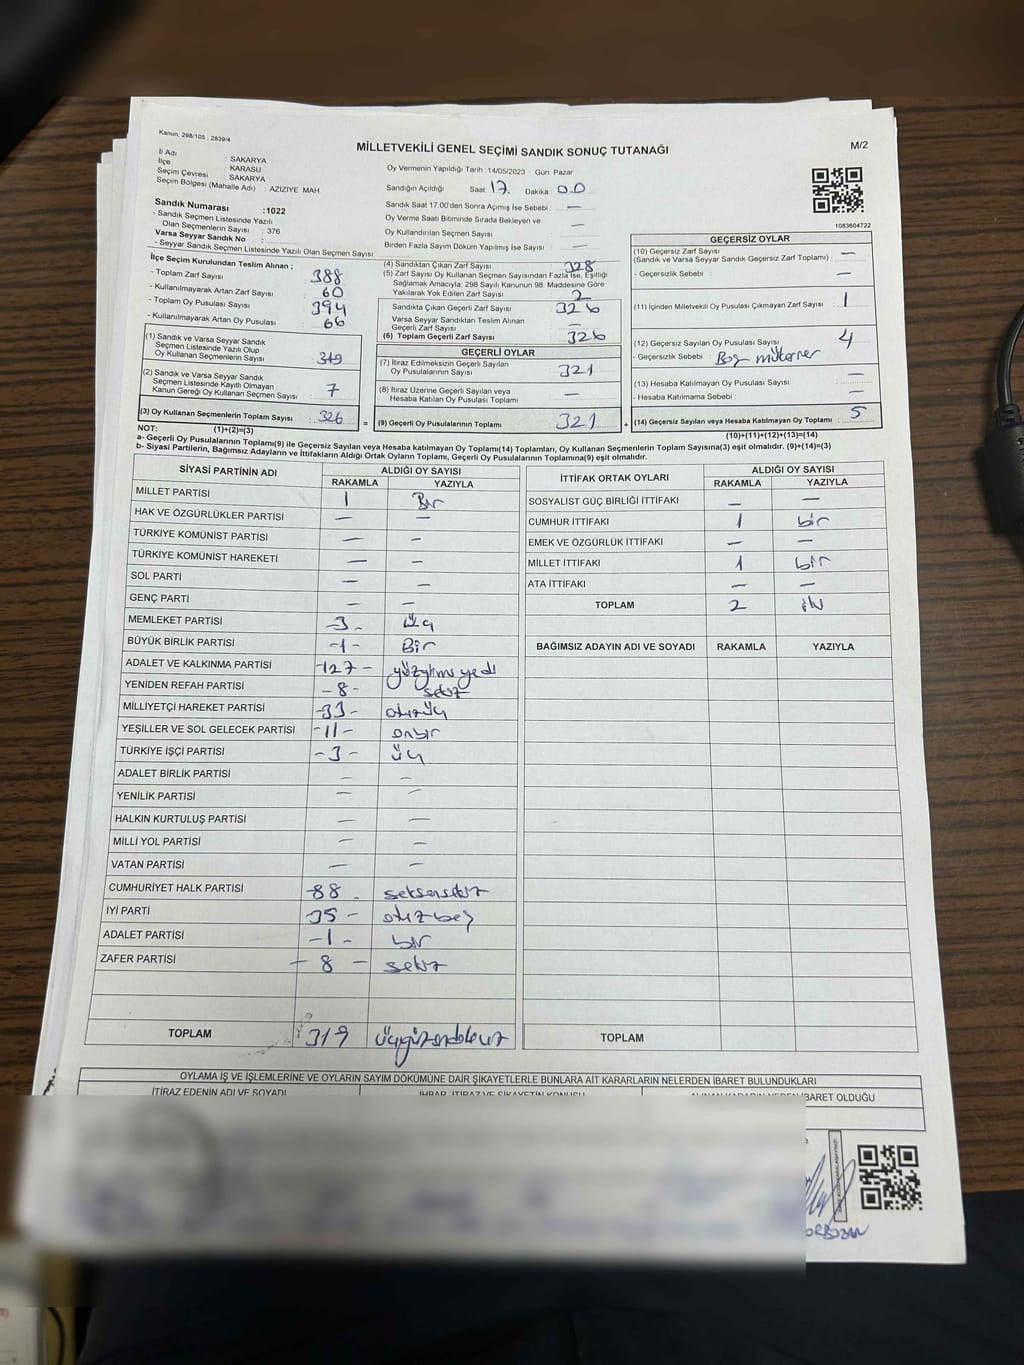 Kanun; 298/105 , 2839/4
MİLLETVEKİLİ GENEL SEÇİMİ SANDIK SONUÇ TUTANAĞI
M/2
İl Adı : SAKARYA
İlçe : KARASU
Seçim Çevresi : SAKARYA
Seçim Bölgesi (Mahalle Adı) : AZIZIYE MAH
Oy Vermenin Yapıldığı Tarih : 14/05/2023 Gün: Pazar
Sandığın Açıldığı Saat: 17. Dakika: 00
Sandık Saat 17:00'den Sonra Açılmış İse Sebebi : —
Oy Verme Saati Bitiminde Sırada Bekleyen ve
Oy Kullandırılan Seçmen Sayısı —
Birden Fazla Sayım Döküm Yapılmış İse Sayısı —
1083604722
Sandık Numarası :1022
- Sandık Seçmen Listesinde Yazılı
Olan Seçmenlerin Sayısı : 376
Varsa Seyyar Sandık No :
- Seyyar Sandık Seçmen Listesinde Yazılı Olan Seçmen Sayısı:
İlçe Seçim Kurulundan Teslim Alınan ;
- Toplam Zarf Sayısı 388
- Kullanılmayarak Artan Zarf Sayısı 60
- Toplam Oy Pusulası Sayısı 394
- Kullanılmayarak Artan Oy Pusulası 66
(1) Sandık ve Varsa Seyyar Sandık
Seçmen Listesinde Yazılı Olup
Oy Kullanan Seçmenlerin Sayısı 319
(2) Sandık ve Varsa Seyyar Sandık
Seçmen Listesinde Kayıtlı Olmayan
Kanun Gereği Oy Kullanan Seçmen Sayısı 7
(3) Oy Kullanan Seçmenlerin Toplam Sayısı 326
(4) Sandıktan Çıkan Zarf Sayısı 328
(5) Zarf Sayısı Oy Kullanan Seçmen Sayısından Fazla İse, Eşitliği
Sağlamak Amacıyla; 298 Sayılı Kanunun 98. Maddesine Göre
Yakılarak Yok Edilen Zarf Sayısı 2
Sandıkta Çıkan Geçerli Zarf Sayısı 326
Varsa Seyyar Sandıktan Teslim Alınan
Geçerli Zarf Sayısı —
(6) Toplam Geçerli Zarf Sayısı 326
GEÇERLİ OYLAR
(7) İtiraz Edilmeksizin Geçerli Sayılan
Oy Pusulalarının Sayısı 321
(8) İtiraz Üzerine Geçerli Sayılan veya
Hesaba Katılan Oy Pusulası Toplamı —
= (9) Geçerli Oy Pusulalarının Toplamı 321 +
GEÇERSİZ OYLAR
(10) Geçersiz Zarf Sayısı
(Sandık ve Varsa Seyyar Sandık Geçersiz Zarf Toplamı) : —
- Geçersizlik Sebebi : —
(11) İçinden Milletvekili Oy Pusulası Çıkmayan Zarf Sayısı : 1
(12) Geçersiz Sayılan Oy Pusulası Sayısı : 4
- Geçersizlik Sebebi :
(13) Hesaba Katılmayan Oy Pusulası Sayısı : —
- Hesaba Katılmama Sebebi : —
(14) Geçersiz Sayılan veya Hesaba Katılmayan Oy Toplamı : 5
NOT: (1)+(2)=(3)
(10)+(11)+(12)+(13)=(14)
a- Geçerli Oy Pusulalarının Toplamı(9) ile Geçersiz Sayılan veya Hesaba katılmayan Oy Toplamı(14) Toplamları, Oy Kullanan Seçmenlerin Toplam Sayısına(3) eşit olmalıdır. (9)+(14)=(3)
b- Siyasi Partilerin, Bağımsız Adayların ve İttifakların Aldığı Ortak Oyların Toplamı, Geçerli Oy Pusulalarının Toplamına(9) eşit olmalıdır.
SİYASİ PARTİNİN ADI ALDIĞI OY SAYISI
RAKAMLA YAZIYLA
MİLLET PARTİSİ 1 Bir
HAK VE ÖZGÜRLÜKLER PARTİSİ — —
TÜRKİYE KOMÜNİST PARTİSİ — —
TÜRKİYE KOMÜNİST HAREKETİ — —
SOL PARTİ — —
GENÇ PARTİ — —
MEMLEKET PARTİSİ -3- üç
BÜYÜK BİRLİK PARTİSİ -1- Bir
ADALET VE KALKINMA PARTİSİ -127- yüzyirmi yedi
YENİDEN REFAH PARTİSİ -8- sekiz
MİLLİYETÇİ HAREKET PARTİSİ -33- otuzüç
YEŞİLLER VE SOL GELECEK PARTİSİ -11- onbir
TÜRKİYE İŞÇİ PARTİSİ -3- üç
ADALET BİRLİK PARTİSİ — —
YENİLİK PARTİSİ — —
HALKIN KURTULUŞ PARTİSİ — —
MİLLİ YOL PARTİSİ — —
VATAN PARTİSİ — —
CUMHURİYET HALK PARTİSİ -88- seksensekiz
İYİ PARTİ -35- otuzbeş
ADALET PARTİSİ -1- bir
ZAFER PARTİSİ -8- sekiz
TOPLAM 319 üçyüzondokuz
İTTİFAK ORTAK OYLARI ALDIĞI OY SAYISI
RAKAMLA YAZIYLA
SOSYALİST GÜÇ BİRLİĞİ İTTİFAKI — —
CUMHUR İTTİFAKI 1 bir
EMEK VE ÖZGÜRLÜK İTTİFAKI — —
MİLLET İTTİFAKI 1 bir
ATA İTTİFAKI — —
TOPLAM 2 iki
BAĞIMSIZ ADAYIN ADI VE SOYADI RAKAMLA YAZIYLA
TOPLAM
OYLAMA İŞ VE İŞLEMLERİNE VE OYLARIN SAYIM DÖKÜMÜNE DAİR ŞİKAYETLERLE BUNLARA AİT KARARLARIN NELERDEN İBARET BULUNDUKLARI
İTİRAZ EDENİN ADI VE SOYADI İHBAR, İTİRAZ VE ŞİKAYETİN KONUSU ALINAN KARARIN NEDEN İBARET OLDUĞU